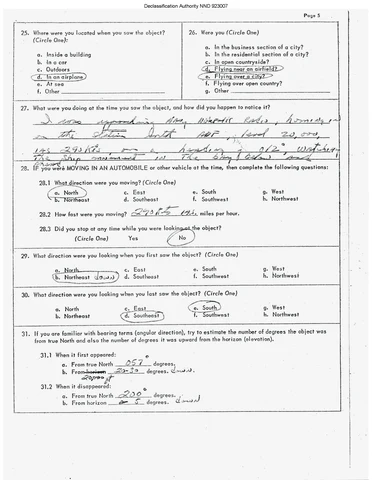 Declassification Authority NND 923007
Page 5
25. Where were you located when you saw the object?
(Circle One):
a. Inside a building
b. In a car
c. Outdoors
d. In an airplane
e. At sea
f. Other
26. Were you (Circle One)
a. In the business section of a city?
b. In the residential section of a city?
c. In open countryside?
d. Flying near an airfield?
e. Flying over a city?
f. Flying over open country?
g. Other
27. What were you doing at the time you saw the object, and how did you happen to notice it?
I was Radio, homing in
on the ADF, level 20,000,
IAS 240 Kts on a heading of 012°, watching
the ship in the
28. IF you were MOVING IN AN AUTOMOBILE or other vehicle at the time, then complete the following questions:
28.1 What direction were you moving? (Circle One)
a. North c. East e. South g. West
b. Northeast d. Southeast f. Southwest h. Northwest
28.2 How fast were you moving? 240 Kts IAS miles per hour.
28.3 Did you stop at any time while you were looking at the object?
(Circle One) Yes No
29. What direction were you looking when you first saw the object? (Circle One)
a. North c. East e. South g. West
b. Northeast down d. Southeast f. Southwest h. Northwest
30. What direction were you looking when you last saw the object? (Circle One)
a. North c. East e. South g. West
b. Northeast d. Southeast f. Southwest h. Northwest
31. If you are familiar with bearing terms (angular direction), try to estimate the number of degrees the object was
from true North and also the number of degrees it was upward from the horizon (elevation).
31.1 When it first appeared:
a. From true North 057° degrees.
b. From horizon 20-30 degrees. down
20,000 ft
31.2 When it disappeared:
a. From true North 200° degrees.
b. From horizon degrees. down